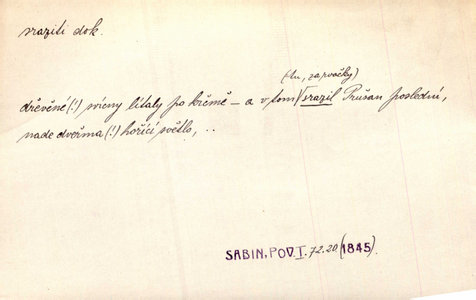 sraziti dok.
(tu, za rvačky)
dřevěné (!) svícny lítaly po krčmě – a v tom srazil Prušan poslední,
nade dveřma (!) hořící světlo, ..
SABIN, POV. I. 72.20 (1845).